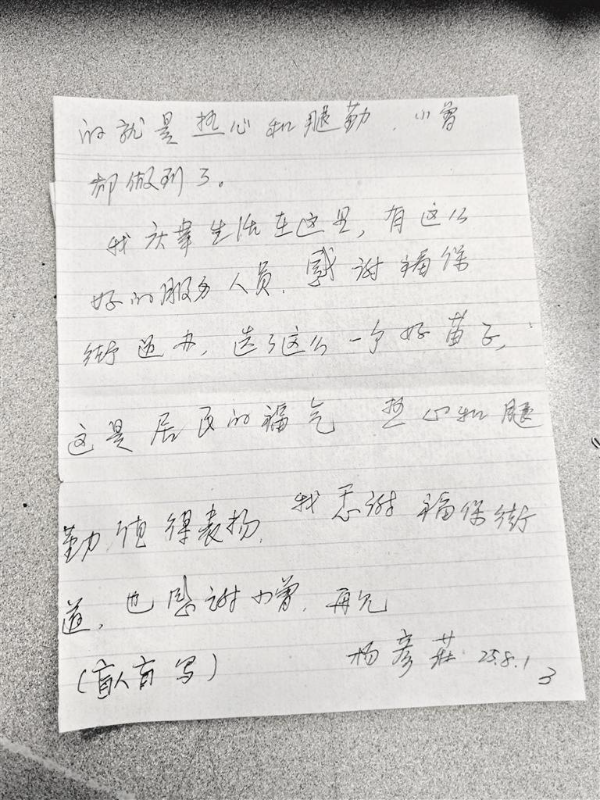 的就是热心和腿勤，小曾
却做到了。
我庆幸生活在这里，有这么
好的服务人员，感谢福保
街道办，选了这么一个好苗子，
这是居民的福气 热心和腿
勤值得表扬，我感谢福保街
道，也感谢小曾，再见
(盲人盲写) 杨彦莊 25.8.1
3